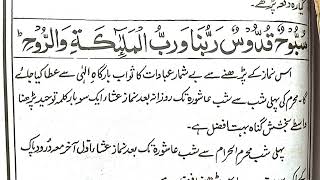 گیارہ دفعہ پڑھے۔
سُبُّوْحٌ قُدُّوْسٌ رَبُّنَا وَرَبُّ الْمَلٰٓئِكَةِ وَالرُّوْحِ ؕ
اس نماز کے پڑھنے سے بے شمار عبادات کا ثواب بارگاہ الٰہی سے عطا کیا جائے
گا۔ محرم کی پہلی شب سے شب عاشورہ تک روزانہ بعد نماز عشاء ایک سو بار کلمہ توحید پڑھنا
واسطے بخشش گناہ بہت افضل ہے۔
پہلی شب محرم الحرام سے شب عاشورہ تک بعد نماز عشاء اول آخر معہ درود پاک